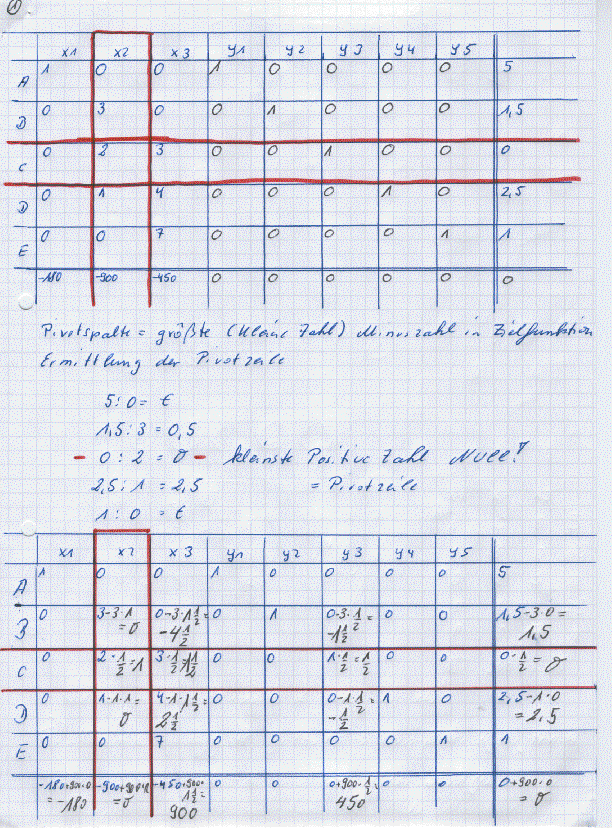 1
x1 x2 x3 y1 y2 y3 y4 y5
A 1 0 0 1 0 0 0 0 5
D 0 3 0 0 1 0 0 0 1,5
C 0 2 3 0 0 1 0 0 0
D 0 1 4 0 0 0 1 0 2,5
E 0 0 7 0 0 0 0 1 1
-180 -900 -450 0 0 0 0 0 0
Pivotspalte = größte (kleine Zahl) Minuszahl in Zielfunktion
Ermittlung der Pivotzeile
5 : 0 = €
1,5 : 3 = 0,5
- 0 : 2 = 0 - kleinste Positive Zahl Null!
2,5 : 1 = 2,5 = Pivotzeile
1 : 0 = €
x1 x2 x3 y1 y2 y3 y4 y5
A 1 0 0 1 0 0 0 0 5
B 0 3-3·1 0-3·1½= 0 1 0-3·½= 0 0 1,5-3·0=
=0 -4½ -1½ 1,5
C 0 2·½=1 3·½=1½ 0 0 1·½=½ 0 0 0·½=0
D 0 1-1·1= 4-1·1½= 0 0 0-1·½= 1 0 2,5-1·0
0 2½ -½ =2,5
E 0 0 7 0 0 0 0 1 1
-180+900·0 -900+900·1 -450+900· 0 0 0+900·½= 0 0 0+900·0
=-180 =0 1½= 450 =0
900